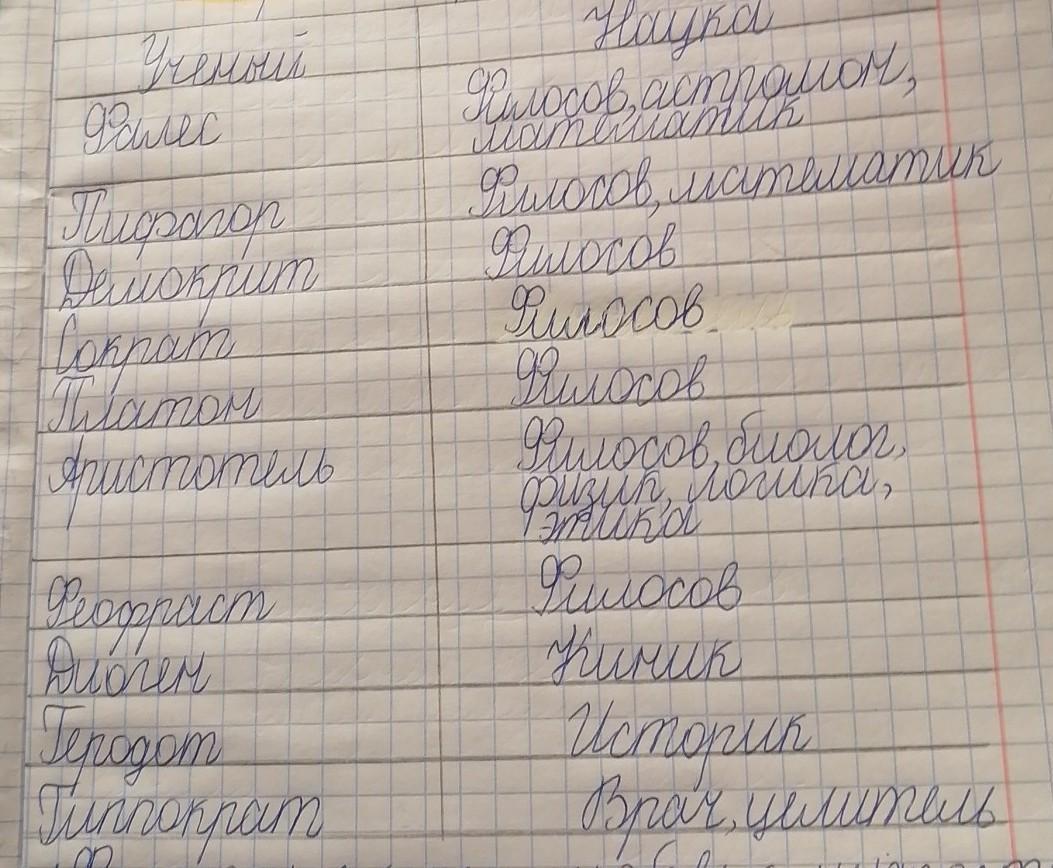 Ученый Наука
Фалес Филосов, астроном,
математик
Пифагор Филосов, математик
Демокрит Филосов
Сократ Филосов
Платон Филосов
Аристотель Филосов, биолог,
физик, логика,
этика
Феофраст Филосов
Диоген Киник
Геродот Историк
Гиппократ Врач, целитель